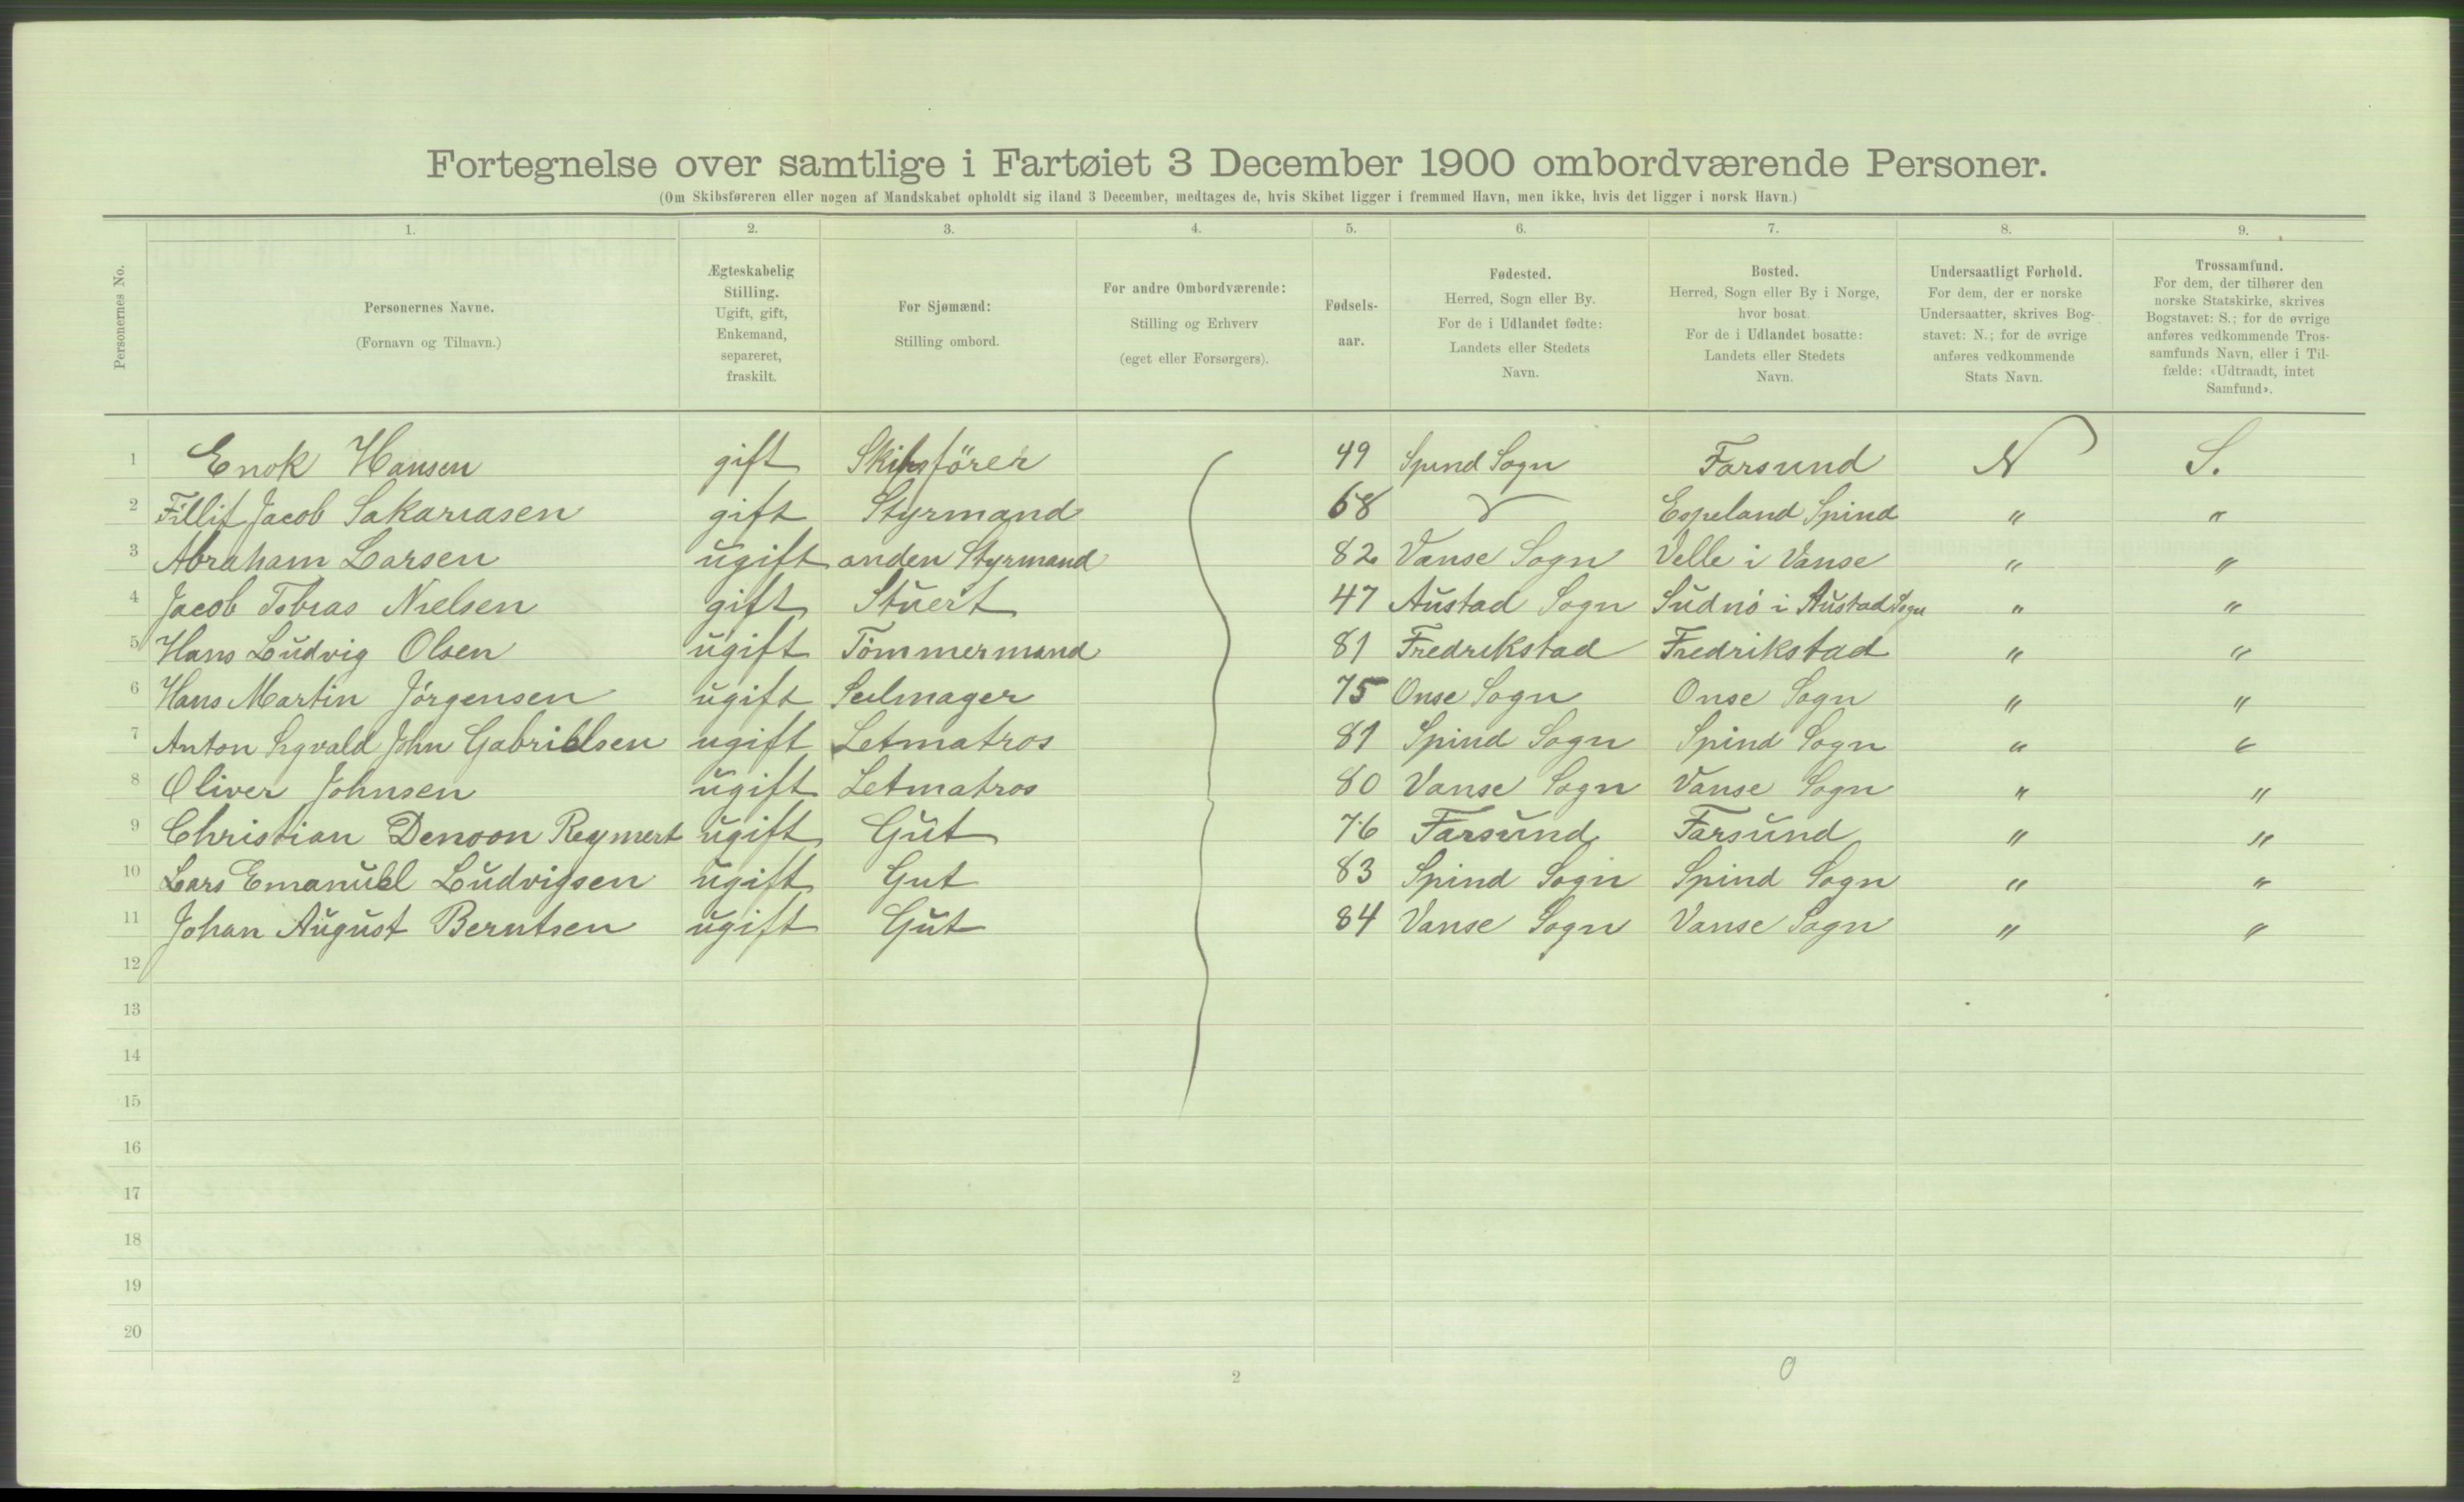 Fortegnelse over samtlige i Fartøiet 3 December 1900 ombordværende Personer.
(Om Skibsføreren eller nogen af Mandskabet opholdt sig iland 3 December, medtages de, hvis Skibet ligger i fremmed Havn, men ikke, hvis det ligger i norsk Havn.)
1. 2. 3. 4. 5. 6. 7. 8. 9.
Personernes No.
Personernes Navne.
(Fornavn og Tilnavn.)
Ægteskabelig
Stilling.
Ugift, gift,
Enkemand,
separeret,
fraskilt.
For Sjømænd:
Stilling ombord.
For andre Ombordværende:
Stilling og Erhverv
(eget eller Forsørgers).
Fødsels-
aar.
Fødested.
Herred, Sogn eller By.
For de i Udlandet fødte:
Landets eller Stedets
Navn.
Bosted.
Herred, Sogn eller By i Norge,
hvor bosat
For de i Udlandet bosatte:
Landets eller Stedets
Navn.
Undersaatligt Forhold.
For dem, der er norske
Undersaatter, skrives Bog-
stavet: N.; for de øvrige
anføres vedkommende
Stats Navn.
Trossamfund.
For dem, der tilhører den
norske Statskirke, skrives
Bogstavet: S.; for de øvrige
anføres vedkommende Tros-
samfunds Navn, eller i Til-
fælde: «Udtraadt, intet
Samfund».
1 Enok Hansen gift Skibsförer 49 Spind Sogn Farsund N S.
2 Fillif Jacob Sakariasen gift Styrmand 68 Espeland Spind " "
3 Abraham Larsen ugift anden Styrmand 82 Vanse Sogn Velle i Vanse " "
4 Jacob Tobias Nielsen gift Stuert 47 Austad Sogn i Austad Sogn " "
5 Hans Ludvig Olsen ugift Tömmermand 81 Fredrikstad Fredrikstad " "
6 Hans Martin Jörgensen ugift Seilmager 75 Onse Sogn Onse Sogn " "
7 Anton Sigvald John Gabrielsen ugift Letmatros 81 Spind Sogn Spind Sogn " "
8 Oliver Johnsen ugift Letmatros 80 Vanse Sogn Vanse Sogn " "
9 Christian Denoon Reymert ugift Gut 76 Farsund Farsund " "
10 Lars Emanuel Ludvigsen ugift Gut 83 Spind Sogn Spind Sogn " "
11 Johan August Berntsen ugift Gut 84 Vanse Sogn Vanse Sogn " "
12
13
14
15
16
17
18
19
20
2
0